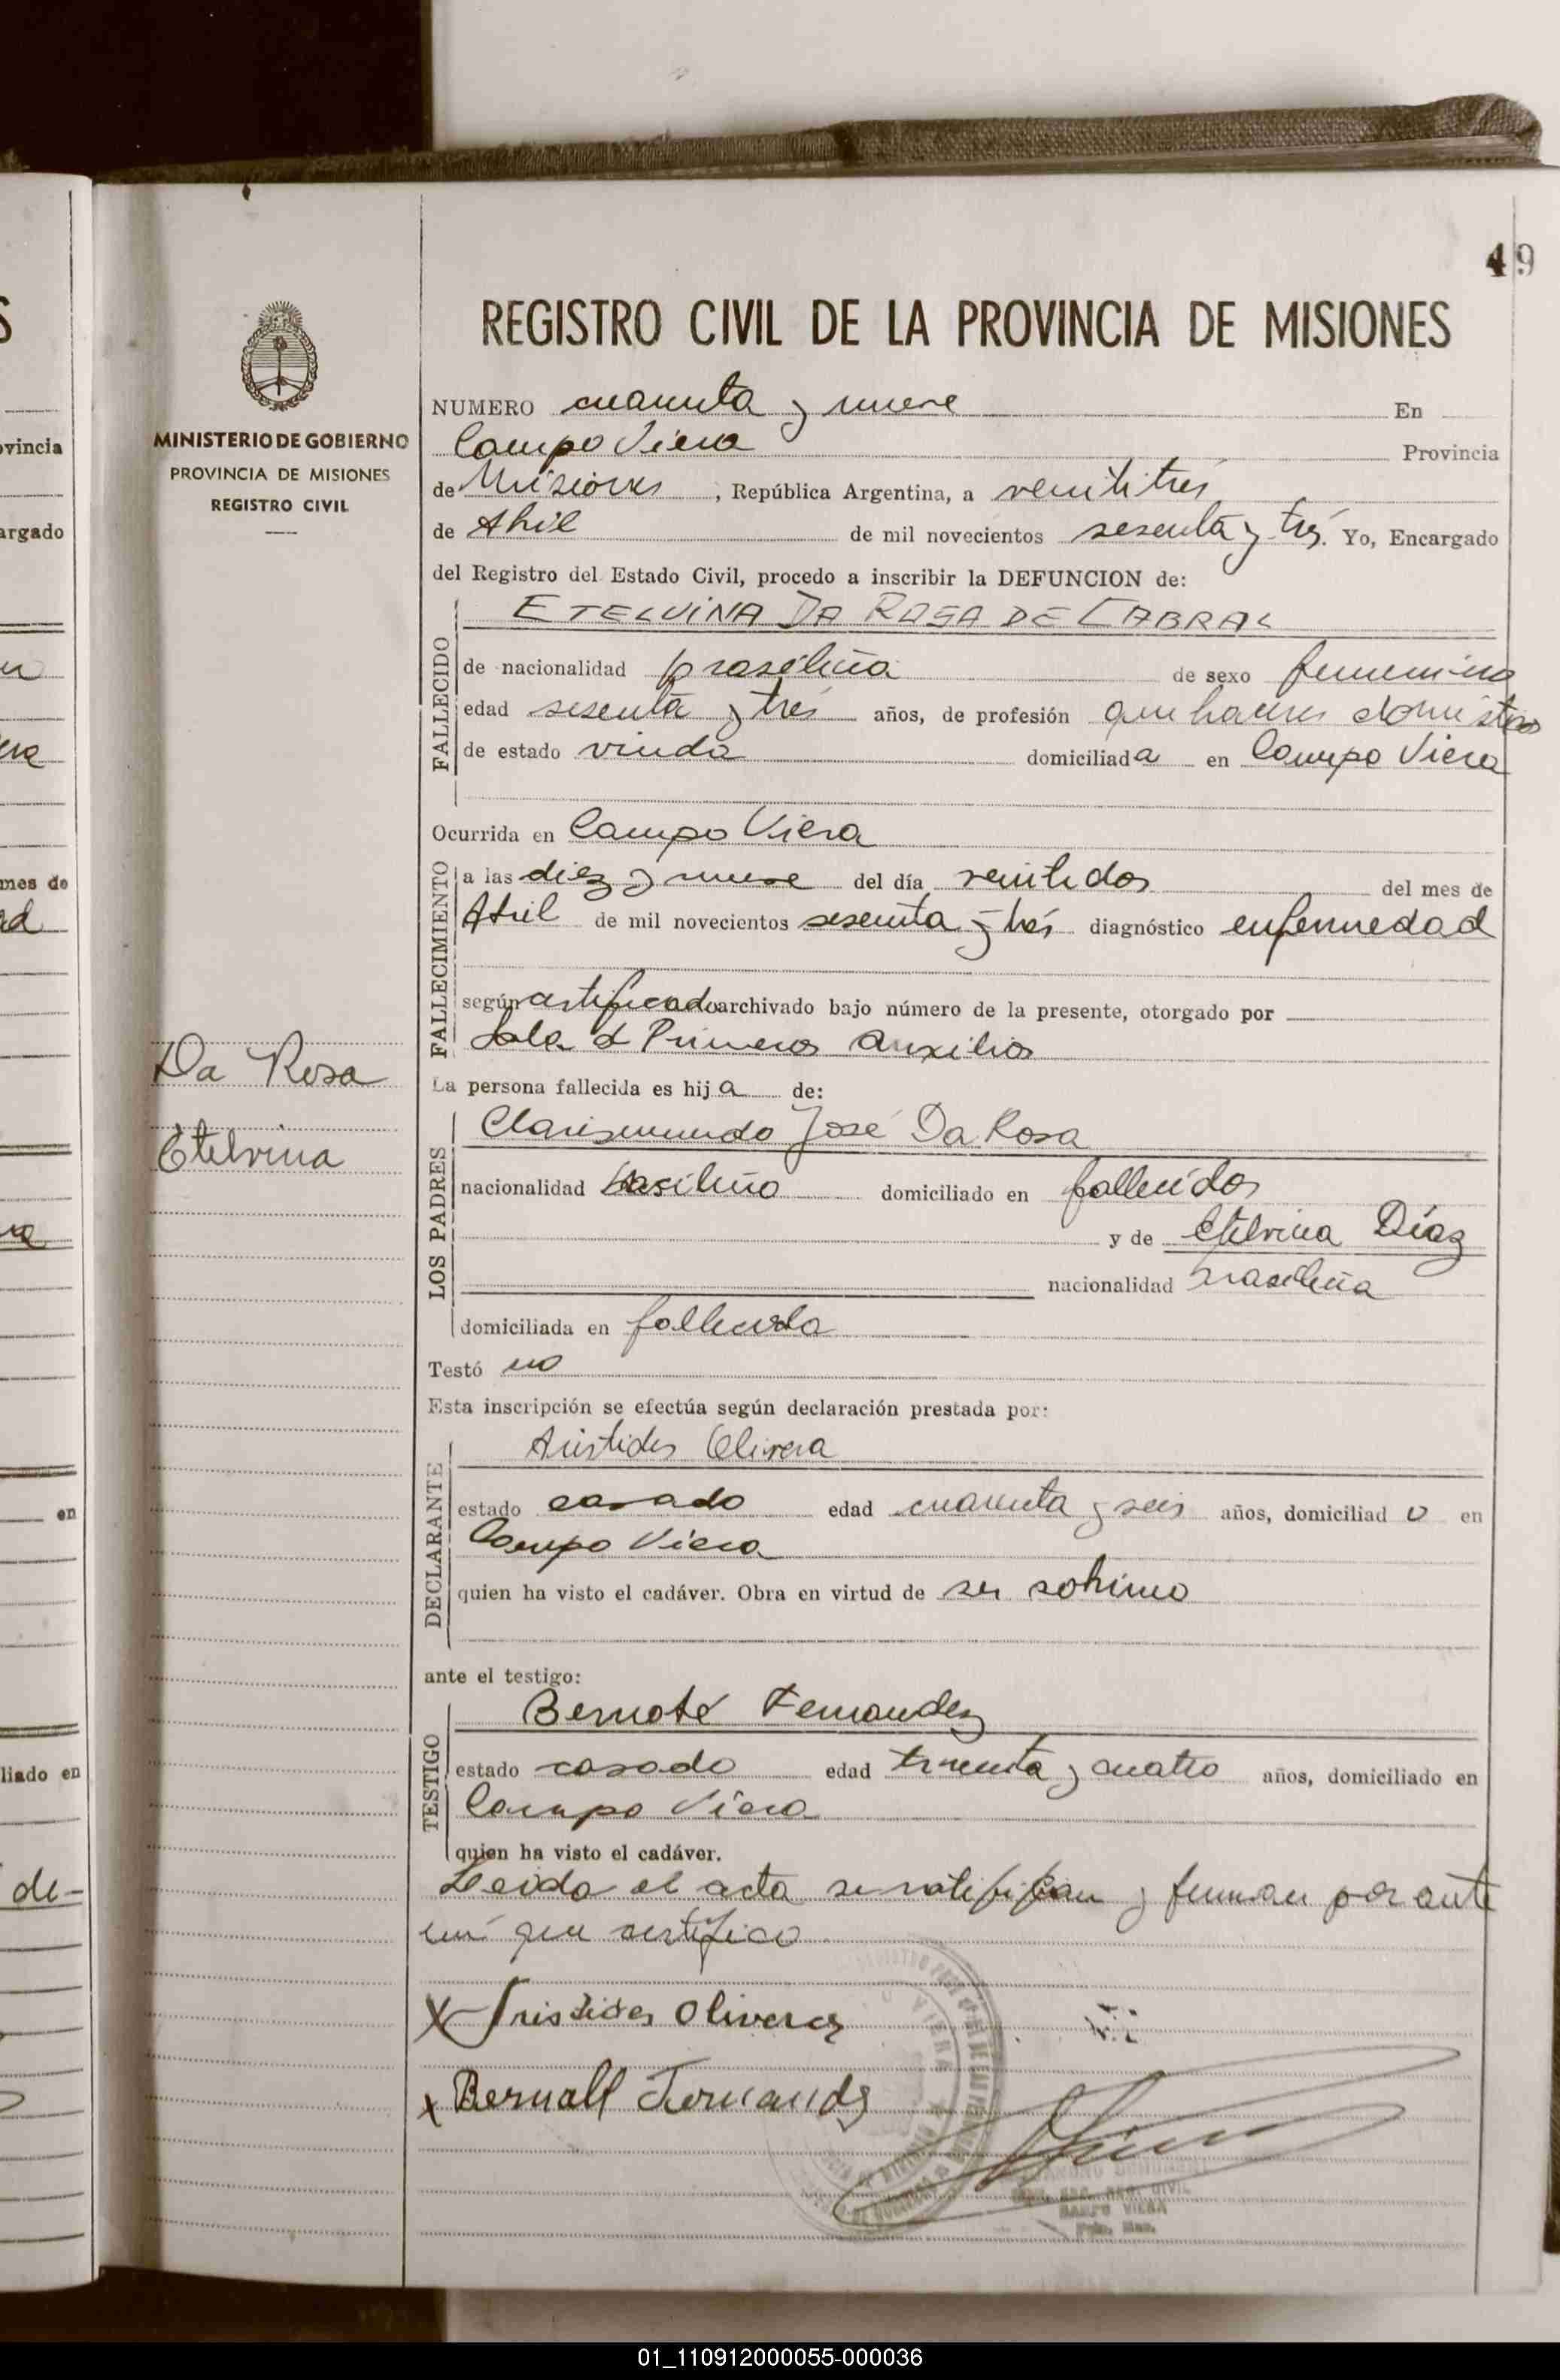 49
REGISTRO CIVIL DE LA PROVINCIA DE MISIONES
MINISTERIO DE GOBIERNO
PROVINCIA DE MISIONES
REGISTRO CIVIL
NUMERO cuarenta y nueve En
Campo Viera Provincia
de Misiones, República Argentina, a veintitres
de Abril de mil novecientos sesenta y tres. Yo, Encargado
del Registro del Estado Civil, procedo a inscribir la DEFUNCION de:
ETELVINA DA ROSA DE CABRAL
FALLECIDO
de nacionalidad brasileña de sexo femenino
edad sesenta y tres años, de profesión quehaceres domésticos
de estado viuda domiciliada en Campo Viera
Ocurrida en Campo Viera
FALLECIMIENTO
a las diez y nueve del día veintidos del mes de
Abril de mil novecientos sesenta y tres diagnóstico enfermedad
según certificado archivado bajo número de la presente, otorgado por
Sala de Primeros Auxilios
Da Rosa
Etelvina
La persona fallecida es hija de:
LOS PADRES
Clarismundo José Da Rosa
nacionalidad brasileño domiciliado en fallecidos
y de Etelvina Díaz
nacionalidad brasileña
domiciliada en fallecida
Testó no
Esta inscripción se efectúa según declaración prestada por:
DECLARANTE
Aristides Olivera
estado casado edad cuarenta y seis años, domiciliado en
Campo Viera
quien ha visto el cadáver. Obra en virtud de ser sobrino
ante el testigo:
TESTIGO
Fernandez
estado casado edad treinta y cuatro años, domiciliado en
Campo Viera
quien ha visto el cadáver.
Leida el acta se ratifican y firman por ante
mí que certifico
x Aristides Olivera
x
CAMPO VIERA
01_110912000055-000036